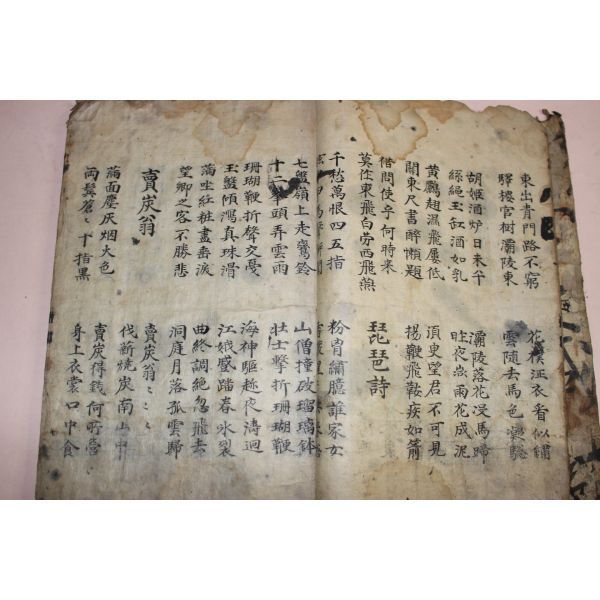 東出青門路不窮
花樸征衣看似繡
驛楼官树灞陵東
雲随去馬色
胡姬酒炉日未午
灞陵落花没馬蹄
絲繩玉缸酒如乳
昨夜微雨花成泥
黄鸝趐濕飛屢低
頂臾望君不可見
關東尺書醉懶題
揚鞭飛鞍疾如箭
借問使乎何時来
莫任東飛白劳西飛燕
琵琶詩
千愁萬恨四五指
粉胷繡臆誰家女
七盤嶺上走鸞鈴
山僧撞破瑠璃鉢
十二峯頭弄雲雨
壮士擊折珊瑚鞭
珊瑚鞭折聲交戛
海神驅趂夜濤迴
玉盤傾瀉真珠滑
江娥感踏春氷裂
滿坐紅粧畵垂淚
曲終調絶忽飛去
望卿之客不勝悲
洞庭月落孤雲歸
賣炭翁
賣炭翁ゝゝゝ
伐薪燒炭南山中
滿面塵灰烟火色
賣炭得錢何所營
両鬂蒼ゝ十指黒
身上衣裳口中食